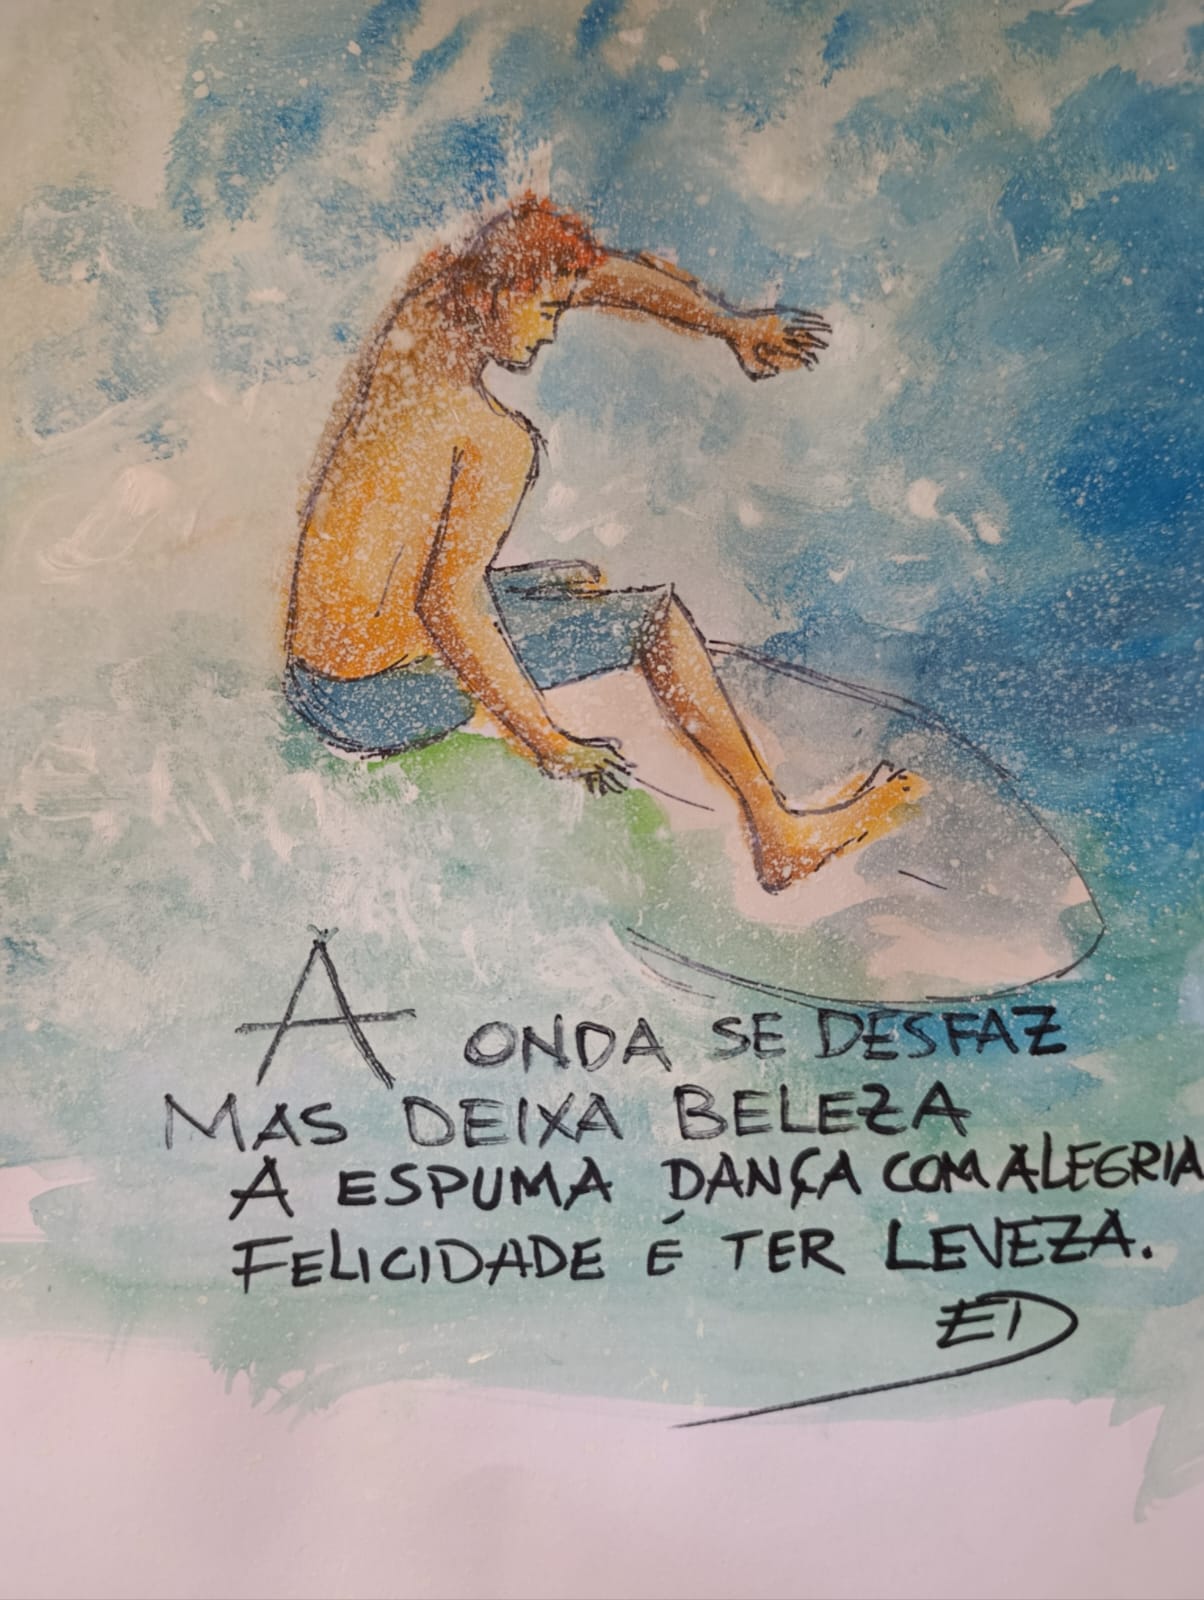 A ONDA SE DESFAZ
MAS DEIXA BELEZA
A ESPUMA DANÇA COM ALEGRIA
FELICIDADE É TER LEVEZA.
ED